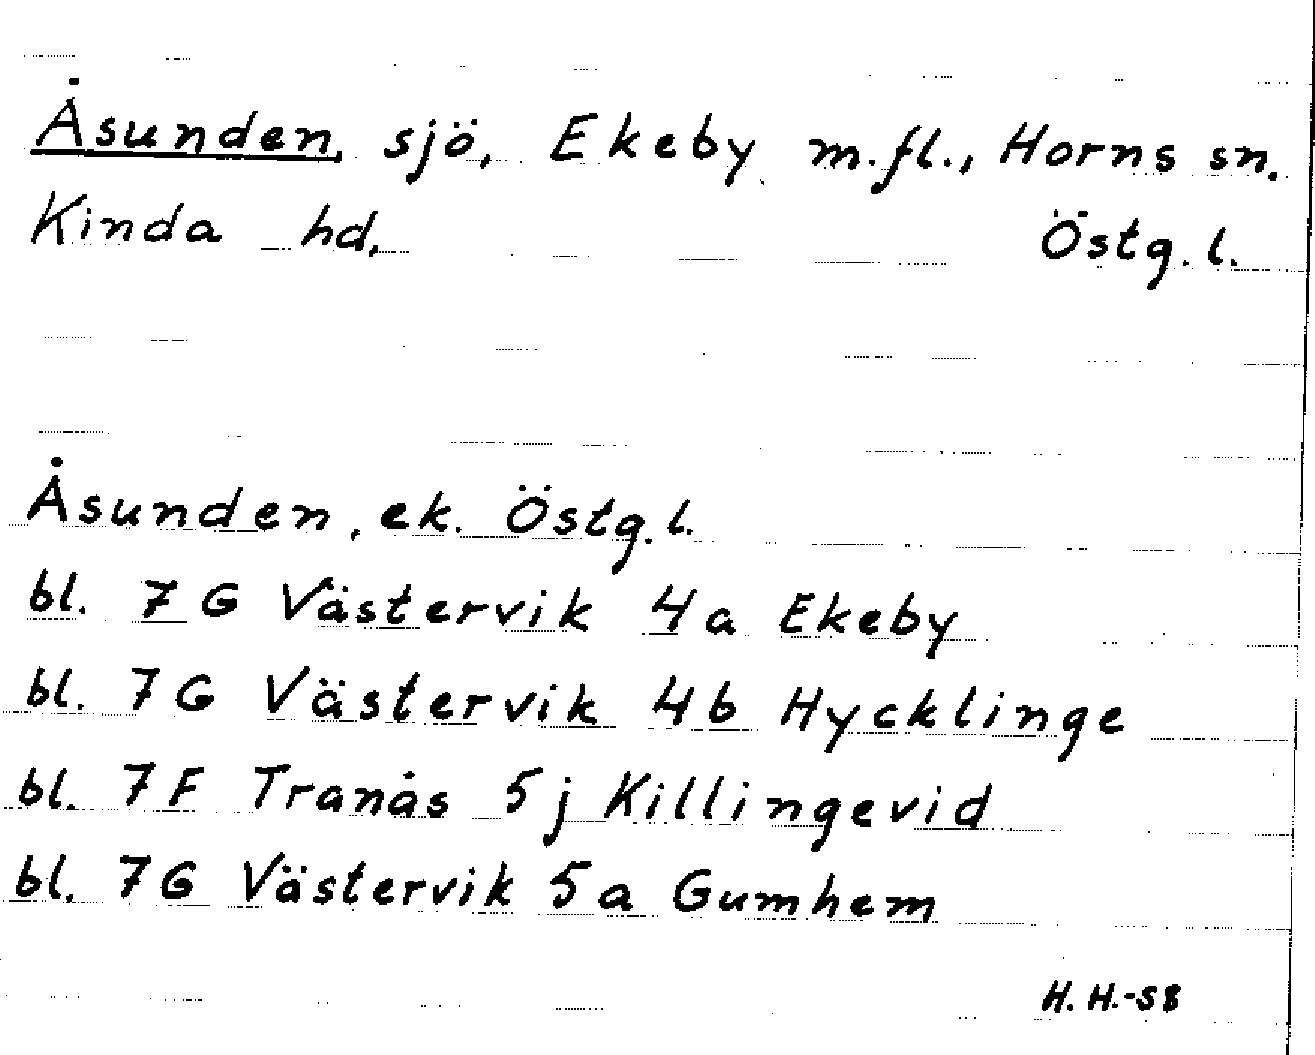 Åsunden, sjö, Ekeby m.fl., Horns sn.
Kinda hd. Östg. l.
Åsunden, ek. Östg. l.
bl. 7G Västervik 4a Ekeby
bl. 7G Västervik 4b Hycklinge
bl. 7F Tranås 5j Killingevid
bl. 7G Västervik 5a Gumhem
H. H.-58